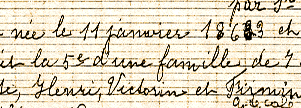 par
née le 11 janvier 18 et
la 5e d'une famille de 7
Henri, Victorin et Firmin